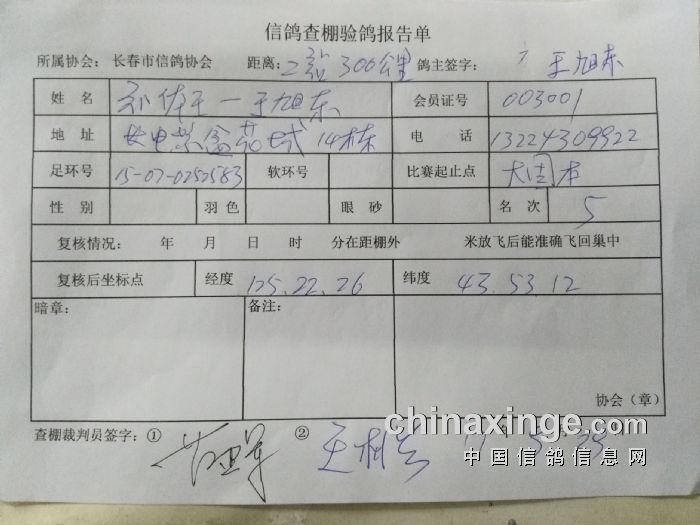 信鸽查棚验鸽报告单
所属协会： 长春市信鸽协会 距离：二站300公里 鸽主签字： 王旭东
姓 名 一王旭东 会员证号 003001
地 址 14栋 电 话 13224309922
足环号 15-07-0252583 软环号 比赛起止点
性 别 羽 色 眼 砂 名 次 5
复核情况： 年 月 日 时 分在距棚外 米放飞后能准确飞回巢中
复核后坐标点 经度 125.22.26 纬度 43.53.12
暗章： 备注：
协会（章）
查棚裁判员签字：① ②
chinaxinge.com
中国信鸽信息网